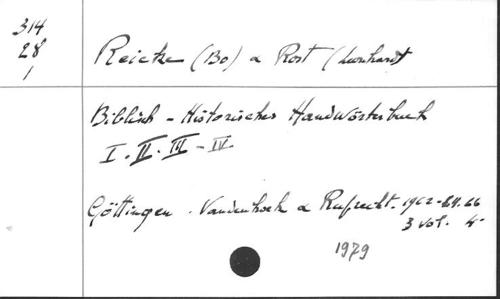 314
28
1
Reicke (Bo) & Rost (Leonhard)
Biblisch - Historisches Handwörterbuch
I. II. III - IV.
Göttingen. Vandenhoek & Ruprecht. 1962-64.66
3 vol. 4°
1979